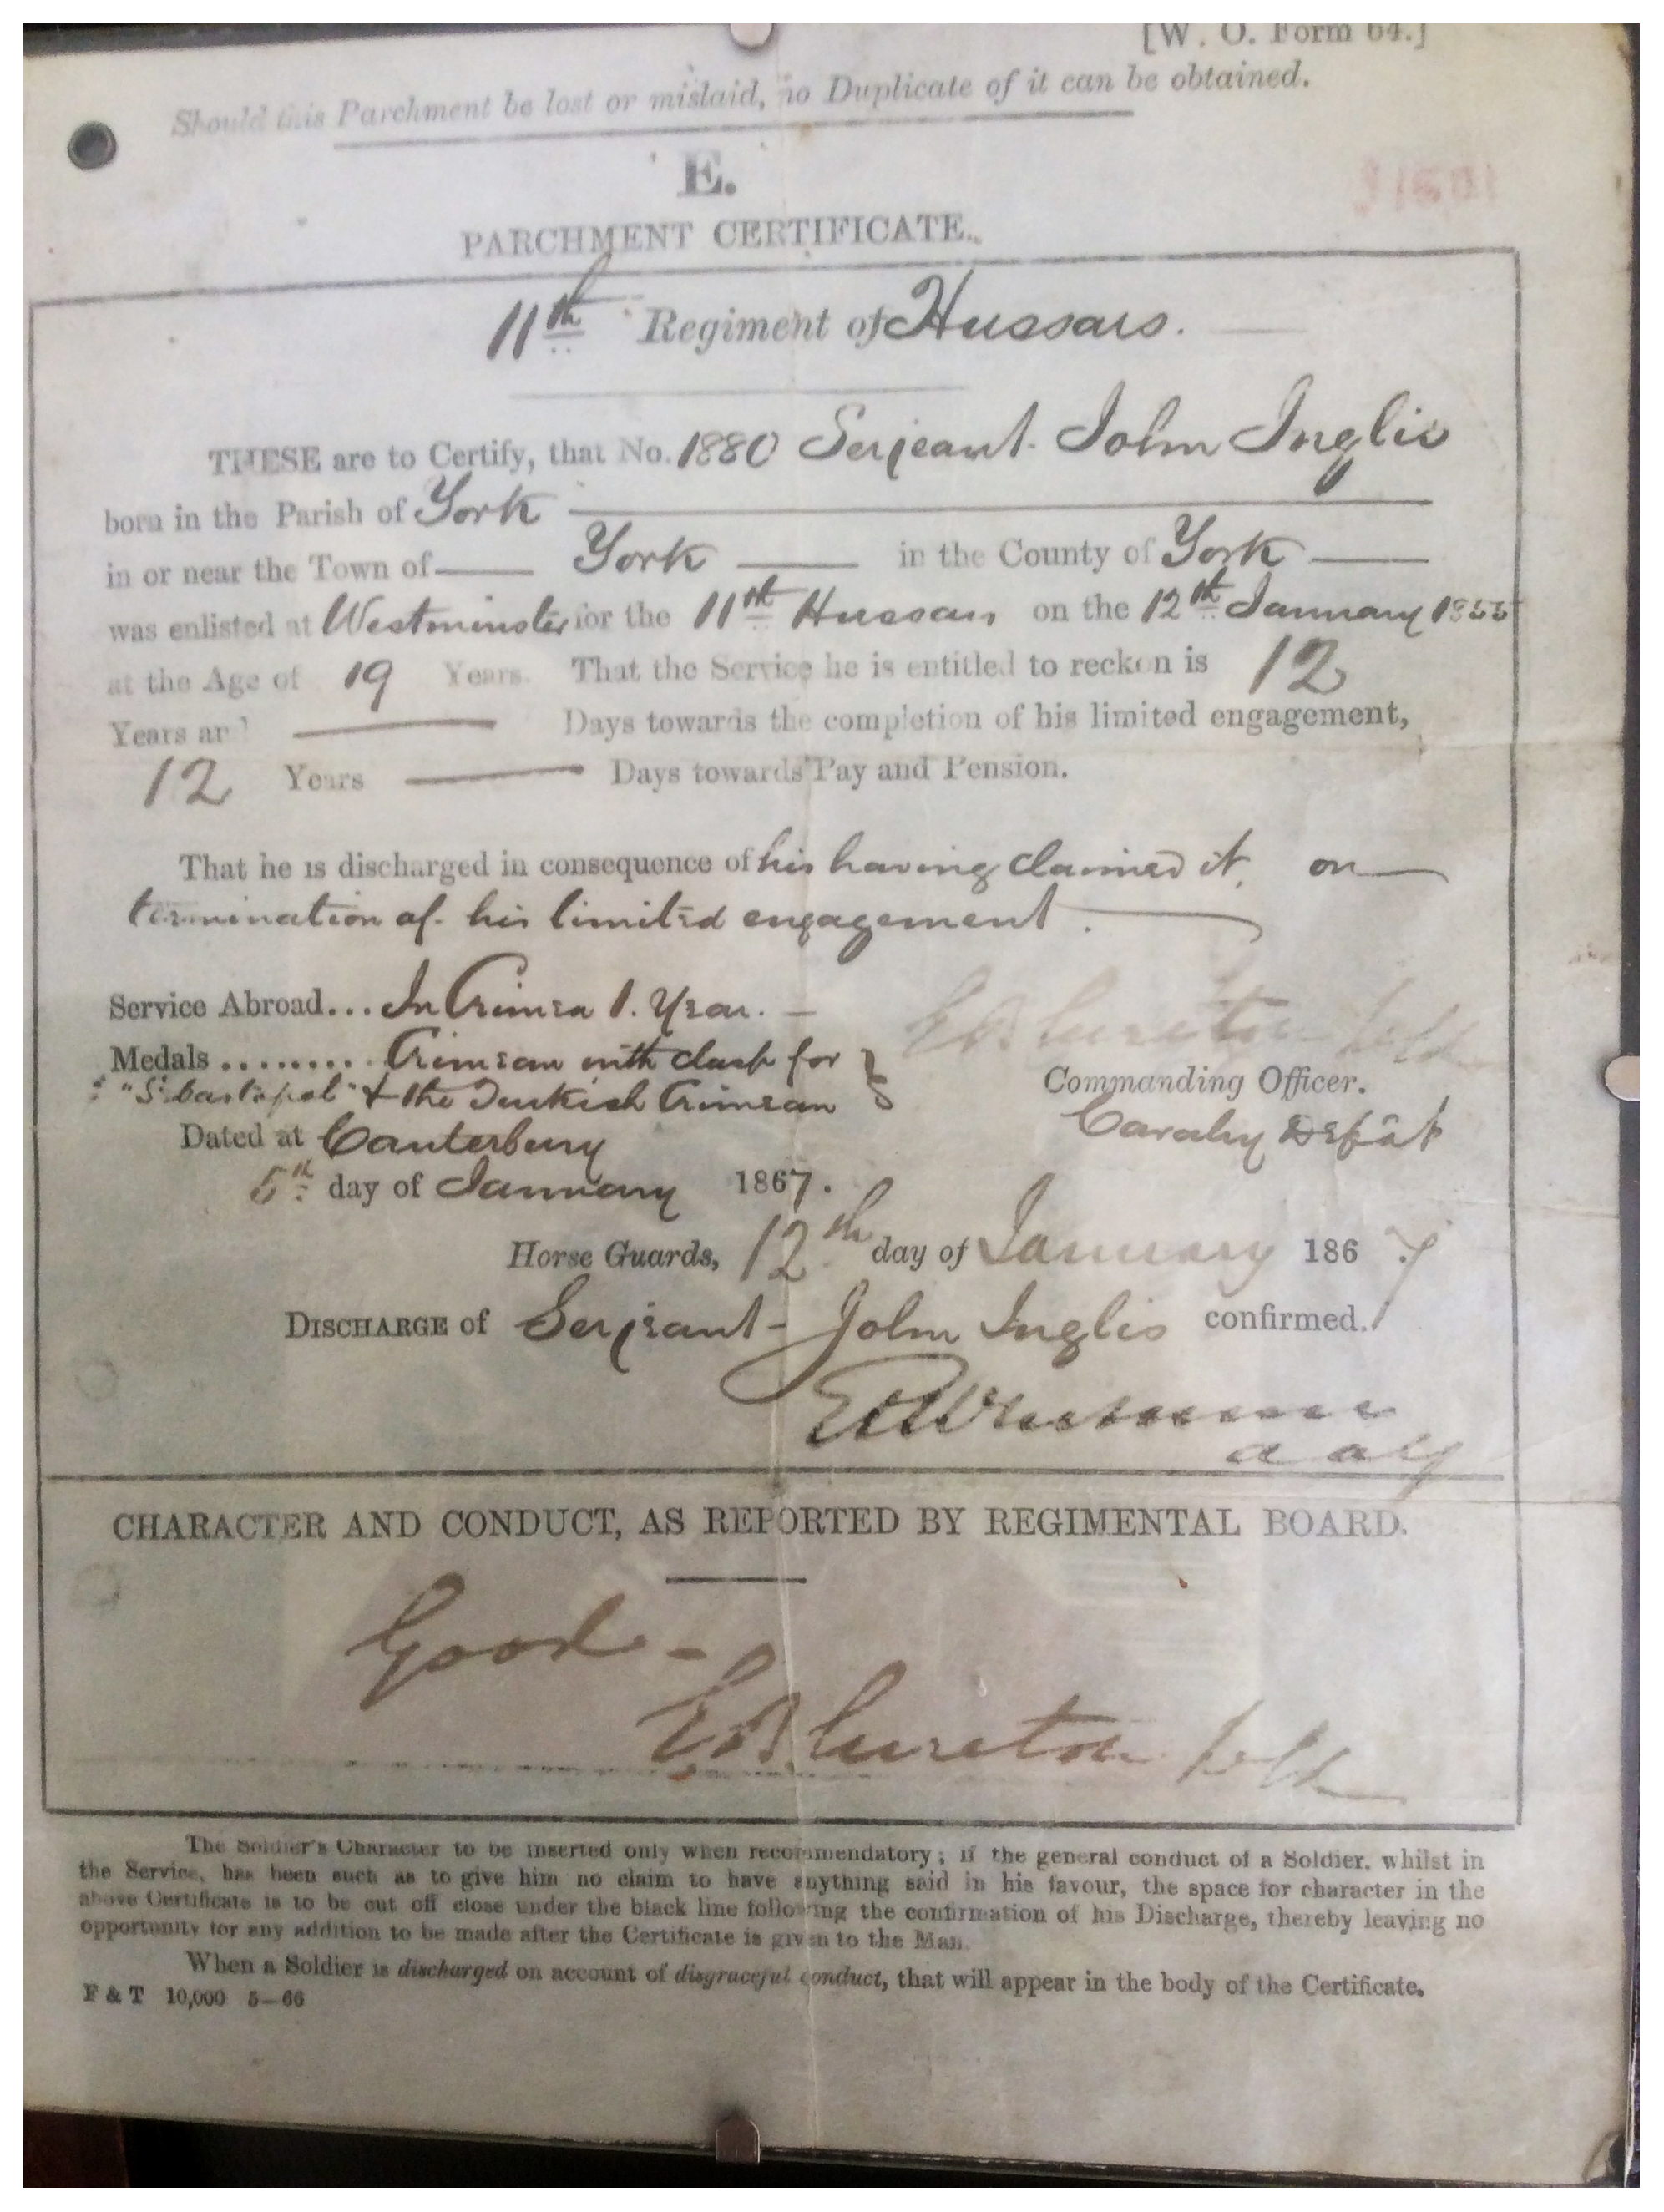 [W. O. Form 64.]
Should this Parchment be lost or mislaid, no Duplicate of it can be obtained.
E.
PARCHMENT CERTIFICATE.
11th Regiment of Hussars.
THESE are to Certify, that No. 1880 Serjeant John Inglis
born in the Parish of York
in or near the Town of York in the County of York
was enlisted at Westminster for the 11th Hussars on the 12th January 1855
at the Age of 19 Years. That the Service he is entitled to reckon is 12
Years and Days towards the completion of his limited engagement,
12 Years Days towards Pay and Pension.
That he is discharged in consequence of his having claimed it, on
termination of his limited engagement.
Service Abroad... In Crimea 1. Year.
Medals ........ Crimean with clasp for
"Sebastopol" & the Turkish Crimean
E B Cureton
Commanding Officer.
Cavalry Depôt
Dated at Canterbury
5th day of January 1867.
Horse Guards, 12th day of January 1867
DISCHARGE of Serjeant John Inglis confirmed.
CHARACTER AND CONDUCT, AS REPORTED BY REGIMENTAL BOARD.
Good -
E B Cureton
The Soldier's Character to be inserted only when recommendatory; if the general conduct of a Soldier, whilst in
the Service, has been such as to give him no claim to have anything said in his favour, the space for character in the
above Certificate is to be cut off close under the black line following the confirmation of his Discharge, thereby leaving no
opportunity for any addition to be made after the Certificate is given to the Man.
When a Soldier is discharged on account of disgraceful conduct, that will appear in the body of the Certificate.
F & T 10,000 5-66